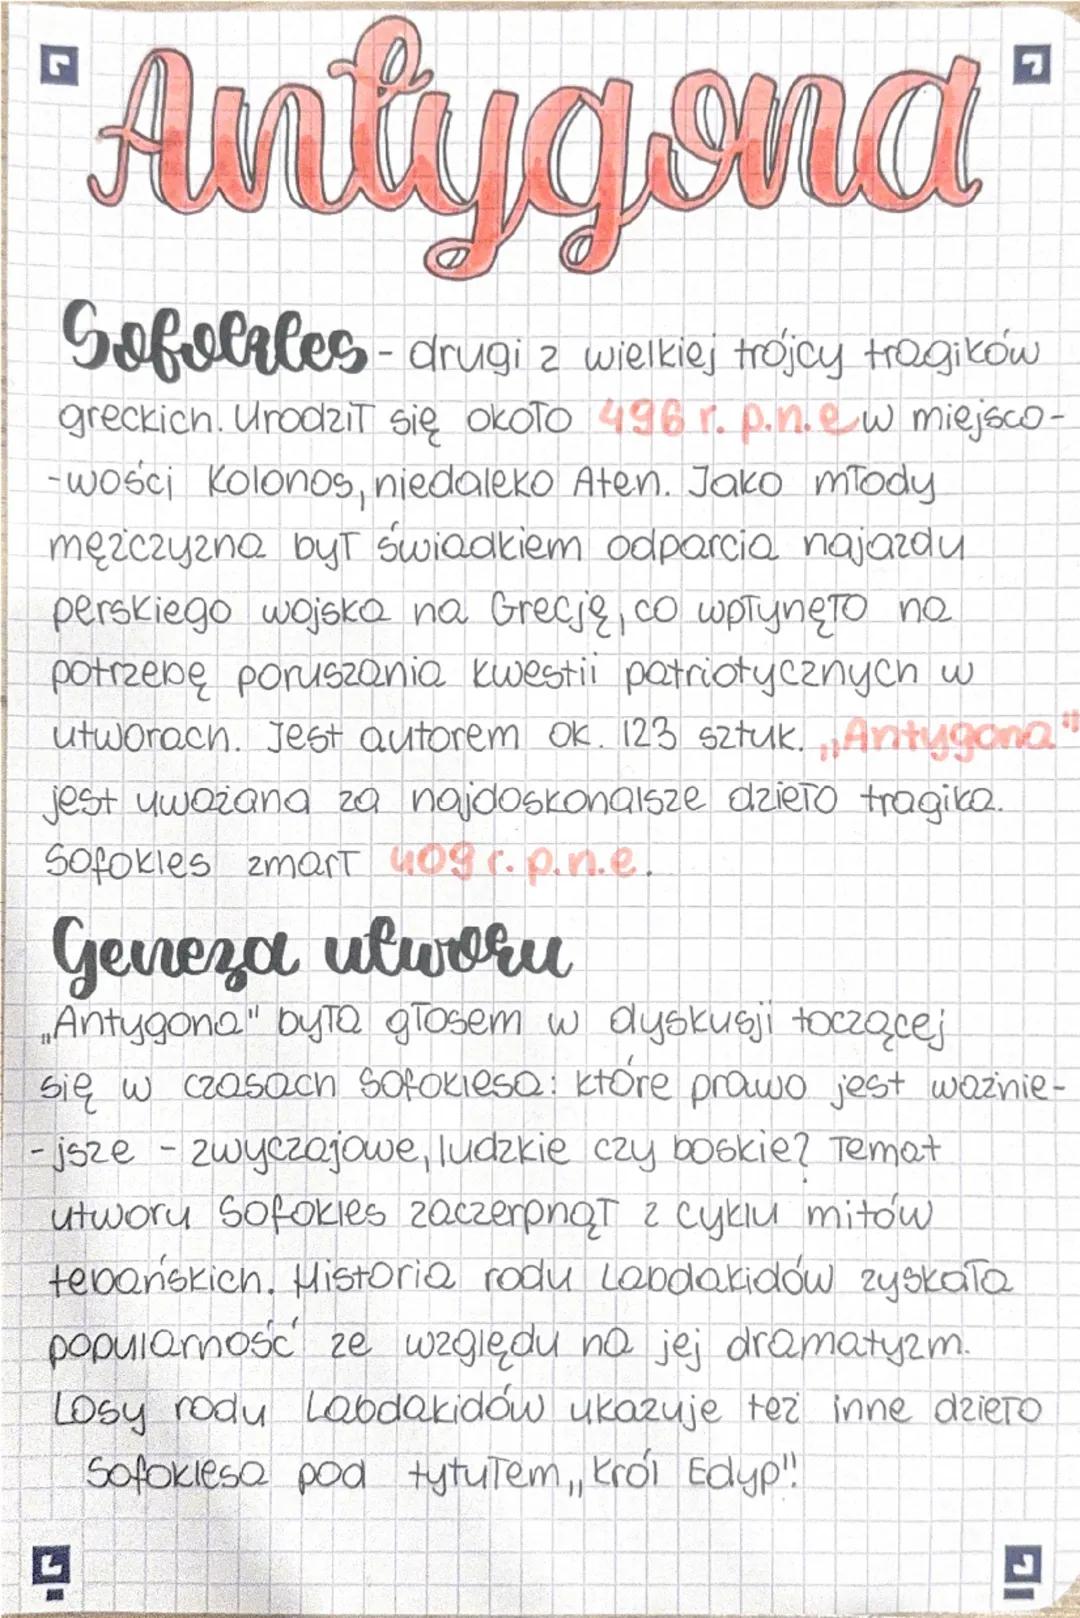 Antygona
Sofokles - drugi z wielkiej trójcy tragików
greckich. Urodził się około 496 r. p.n.e w miejsco-
-wości Kolonos, niedaleko Aten. Jako młody
mężczyzna był świadkiem odparcia najazdu
perskiego wojska na Grecję, co wpłynęło na
potrzebę poruszania kwestii patriotycznych w
utworach. Jest autorem ok. 123 sztuk. „Antygona"
jest uważana za najdoskonalsze dzieło tragika.
Sofokles zmarł 409 r. p.n.e.
Geneza utworu
„Antygona" była głosem w dyskusji toczącej
się w czasach Sofoklesa: które prawo jest ważnie-
-jsze - zwyczajowe, ludzkie czy boskie? Temat
utworu Sofokles zaczerpnął z cyklu mitów
tebańskich. Historia rodu Labdakidów zyskała
popularność ze względu na jej dramatyzm.
Losy rodu Labdakidów ukazuje też inne dzieło
Sofoklesa pod tytułem „Król Edyp".